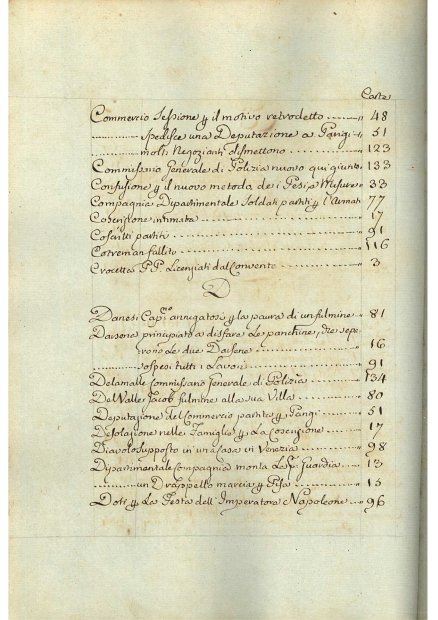 Carte
Commercio Sessione p il motivo retrodetto ........ 48
............ spedisce una Deputazione a Parigi .. 51
............ molti Negozianti dismettono ............ 123
Commissario Generale di Polizia nuovo qui giunto 133
Confusione p il nuovo metodo de i Pesi, a Misure 33
Compagnia Dipartimentale Soldati partiti p l'Armat 77
Coscrizione intimata ............ 17
Coscritti partiti ............ 91
Cotreman fallito ............ 116
Crocetta P.P. Licenziati dal Convento ............ 3
D
Danesi Cap.o annegatosi p la paura di un fulmine .. 81
Darsena principiato a disfare le panchine, che sepe-
rono le due Darsene ............ 16
............ sospesi tutti i Lavori ............ 91
Delamalle Commissario Generale di Polizia ...... 134
De Walle Jacob fulmine alla sua Villa ............ 80
Deputazione del Commercio partita p Parigi .... 51
Desolazione nelle Famiglie p La Coscrizione .... 17
Diavolo supposto in una Casa in Venezia ........ 98
Dipartimentale Compagnia monta La Guardia ..... 13
............ un Drappello marcia p Pisa ............ 15
Doti p La Festa dell'Imperatore Napoleone ... 96